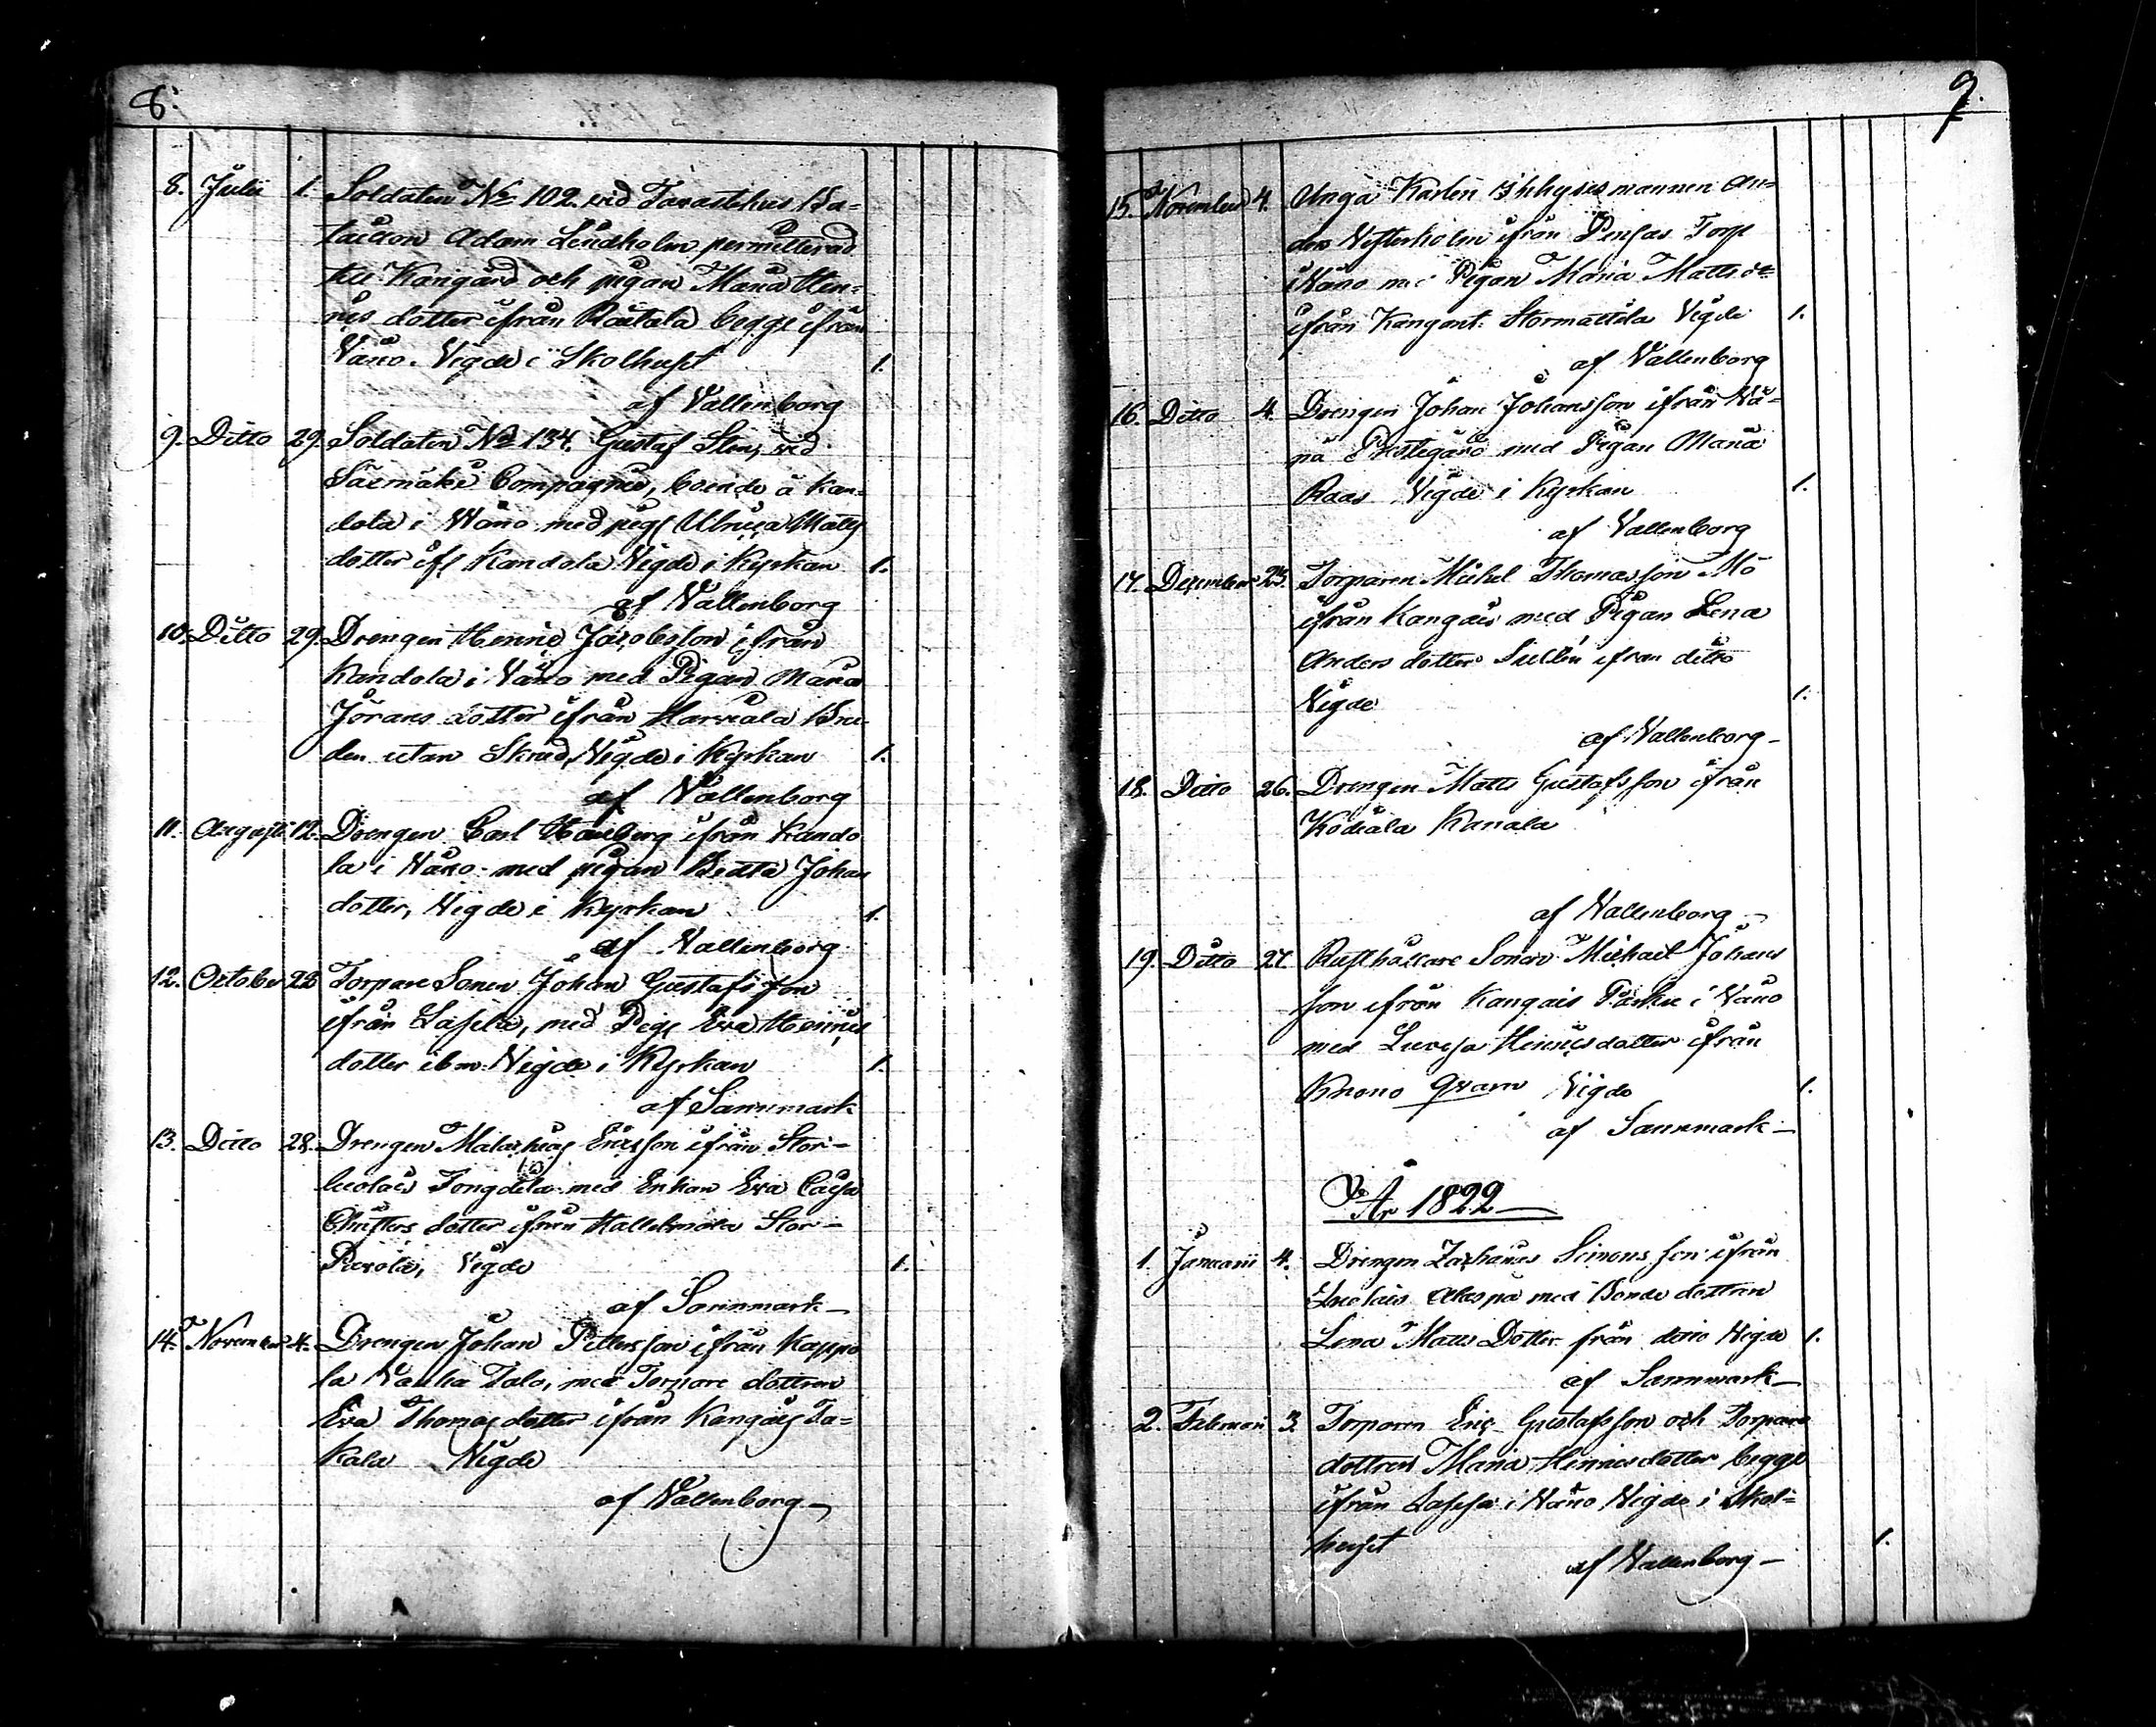 8.
8. Julii 1. Soldaten No 102. vid Tavastehus Ba-
taillon Adam Lindholm permitterad
till Kärigård och pigan Maria Hen-
rics dotter ifrån Rastala begge ifrån
Våno. Vigde i Skolhuset 1.
af Vallenborg
9. Ditto 29. Soldaten No 134. Gustaf Sten, vid
Säxmäki Compagnie, boende å Kan-
dola i Wåno med pig Ulrica Matts
dotter ifr Kandola Vigde i Kyrkan 1.
af Wallenborg
10. Ditto 29. Drengen Henric Jacobsson ifrån
Kandola i Våno med Pigan Maria
Jörans dotter ifrån Harviala Bru-
den utan Skrud, Vigde i Kyrkan 1.
af Wallenborg
11. Augusti 12. Drengen Carl Hauberg ifrån Kando
la i Wåno med pigan Beata Johan
dotter, Vigde i Kyrkan 1.
af Wallenborg
12. October 22 Torpare Sonen Johan Gustafsson
ifrån Lasela, med Pig Eva Henrics
dotter ibm Vigde i Kyrkan 1.
af Sannmark
13. Ditto 28. Drengen Malachias Ericsson ifrån Stor-
luolais Tongdela med Enkan Eva Caisa
Christers dotter ifrån Hallelmola Stor-
Parola, Vigde 1.
af Sannmark
14. November 4. Drengen Johan Pettersson ifrån Kappo
la Vanha Talo, med Torpare dottren
Eva Thomasdotter ifrån Kangais Ta-
kala Vigde
af Wallenborg
9.
15. November 4. Unga Karlen Inhysesmannen An-
ders Vesterholm ifrån Pensas Torp
i Wåno med Pigan Maria Mattsdr
ifrån Kangent. Stormattila Vigde 1.
af Vallenborg
16. Ditto 4. Drengen Johan Johansson ifrån Wå-
nå Prestegård med Pigan Maria
Raas Vigde i Kyrkan 1.
af Vallenborg
17. December 23. Torparen Michel Thomasson Mö
ifrån Kangais med Pigan Lena
Anders dotter Sullin ifrån ditto
Vigde 1.
af Wallenborg
18. Ditto 26. Drengen Matts Gustafsson ifrån
Ködiala Kanala
af Wallenborg
19. Ditto 27. Rusthållare Sonen Michael Johans
son ifrån Kangais Pasku i Våno
med Lovisa Henricsdotter ifrån
Knono Qvarn Vigde 1.
af Sannmark
År 1822
1. Januarii 4. Drengen Zachæus Simonsson ifrån
Luolais Alaspä med Bonde dottren
Lena Matts Dotter från ditto Vigde 1.
af Sannmark
2. Februarii 3. Torparen Eric Gustafsson och Torpare
dottren Maria Henricsdotter begge
ifrån Lassila i Våno Vigde i Skol-
huset 1.
af Wallenborg